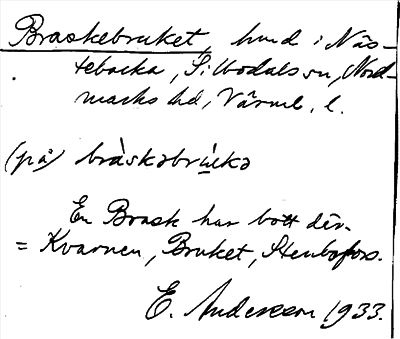 Braskebruket, hmd i Näs-
tebacka, Sillbodals sn, Nord-
marks hd, Värml. l.
(på) bråskəbrükə
En Brask har bott där.
= Kvarnen, Bruket, Stenbofors.
E. Anderson 1933.